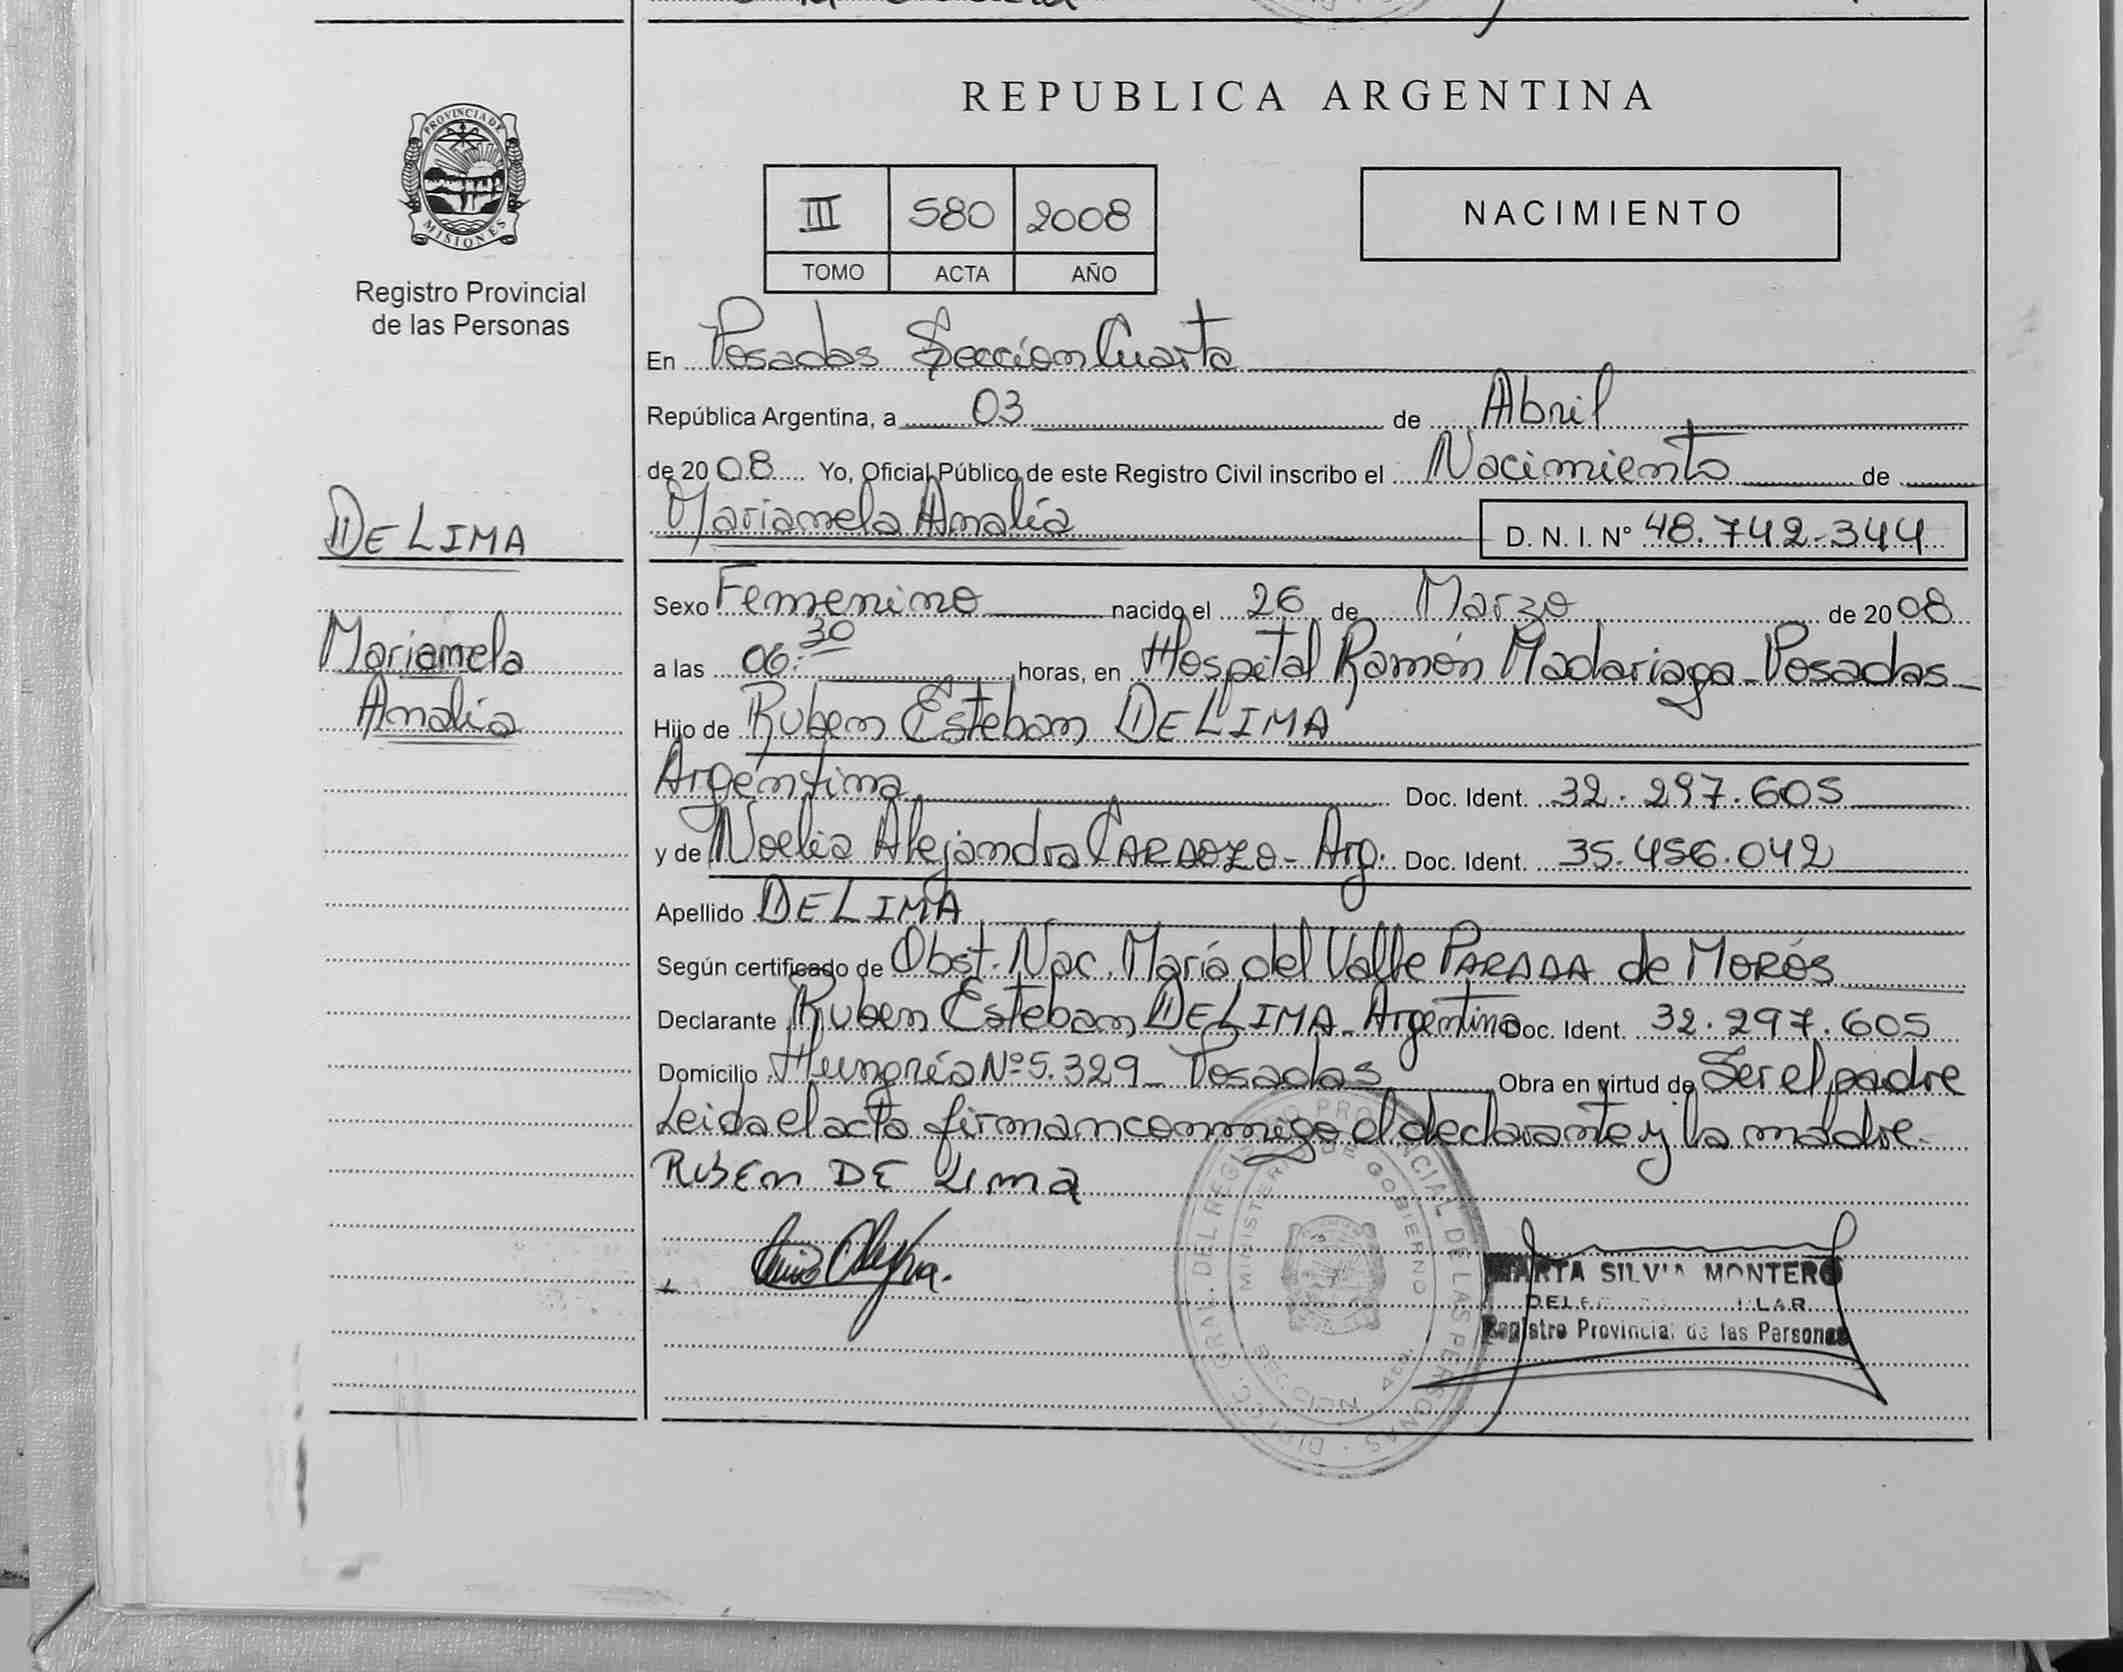 REPUBLICA ARGENTINA
PROVINCIA DE
MISIONES
Registro Provincial
de las Personas
III 580 2008
TOMO ACTA AÑO
NACIMIENTO
En Posadas Sección Cuarta
República Argentina, a 03 de Abril
de 2008 Yo, Oficial Público de este Registro Civil inscribo el Nacimiento de
Mariamela Amalia D. N. I. Nº 48.742.344
DE LIMA
Mariamela
Amalia
Sexo Femenino nacido el 26 de Marzo de 2008
a las 06:30 horas, en Hospital Ramón Madariaga - Posadas
Hijo de Ruben Esteban DE LIMA
Argentina Doc. Ident. 32.297.605
y de Noelia Alejandra CARDOZO - Arg. Doc. Ident. 35.456.042
Apellido DE LIMA
Según certificado de Obst. Nac. María del Valle PARADA de MORÓS
Declarante Ruben Esteban DE LIMA - Argentina Doc. Ident. 32.297.605
Domicilio Hungría Nº 5.329 - Posadas Obra en virtud de Ser el padre
Leida el acta firman conmigo el declarante y la madre.
RUBEN DE LIMA
DIRECC. GRAL. DEL REGISTRO PROVINCIAL DE LAS PERSONAS
MINISTERIO DE GOBIERNO
SECCION 4ta.
MARTA SILVIA MONTERO
Registro Provincial de las Personas